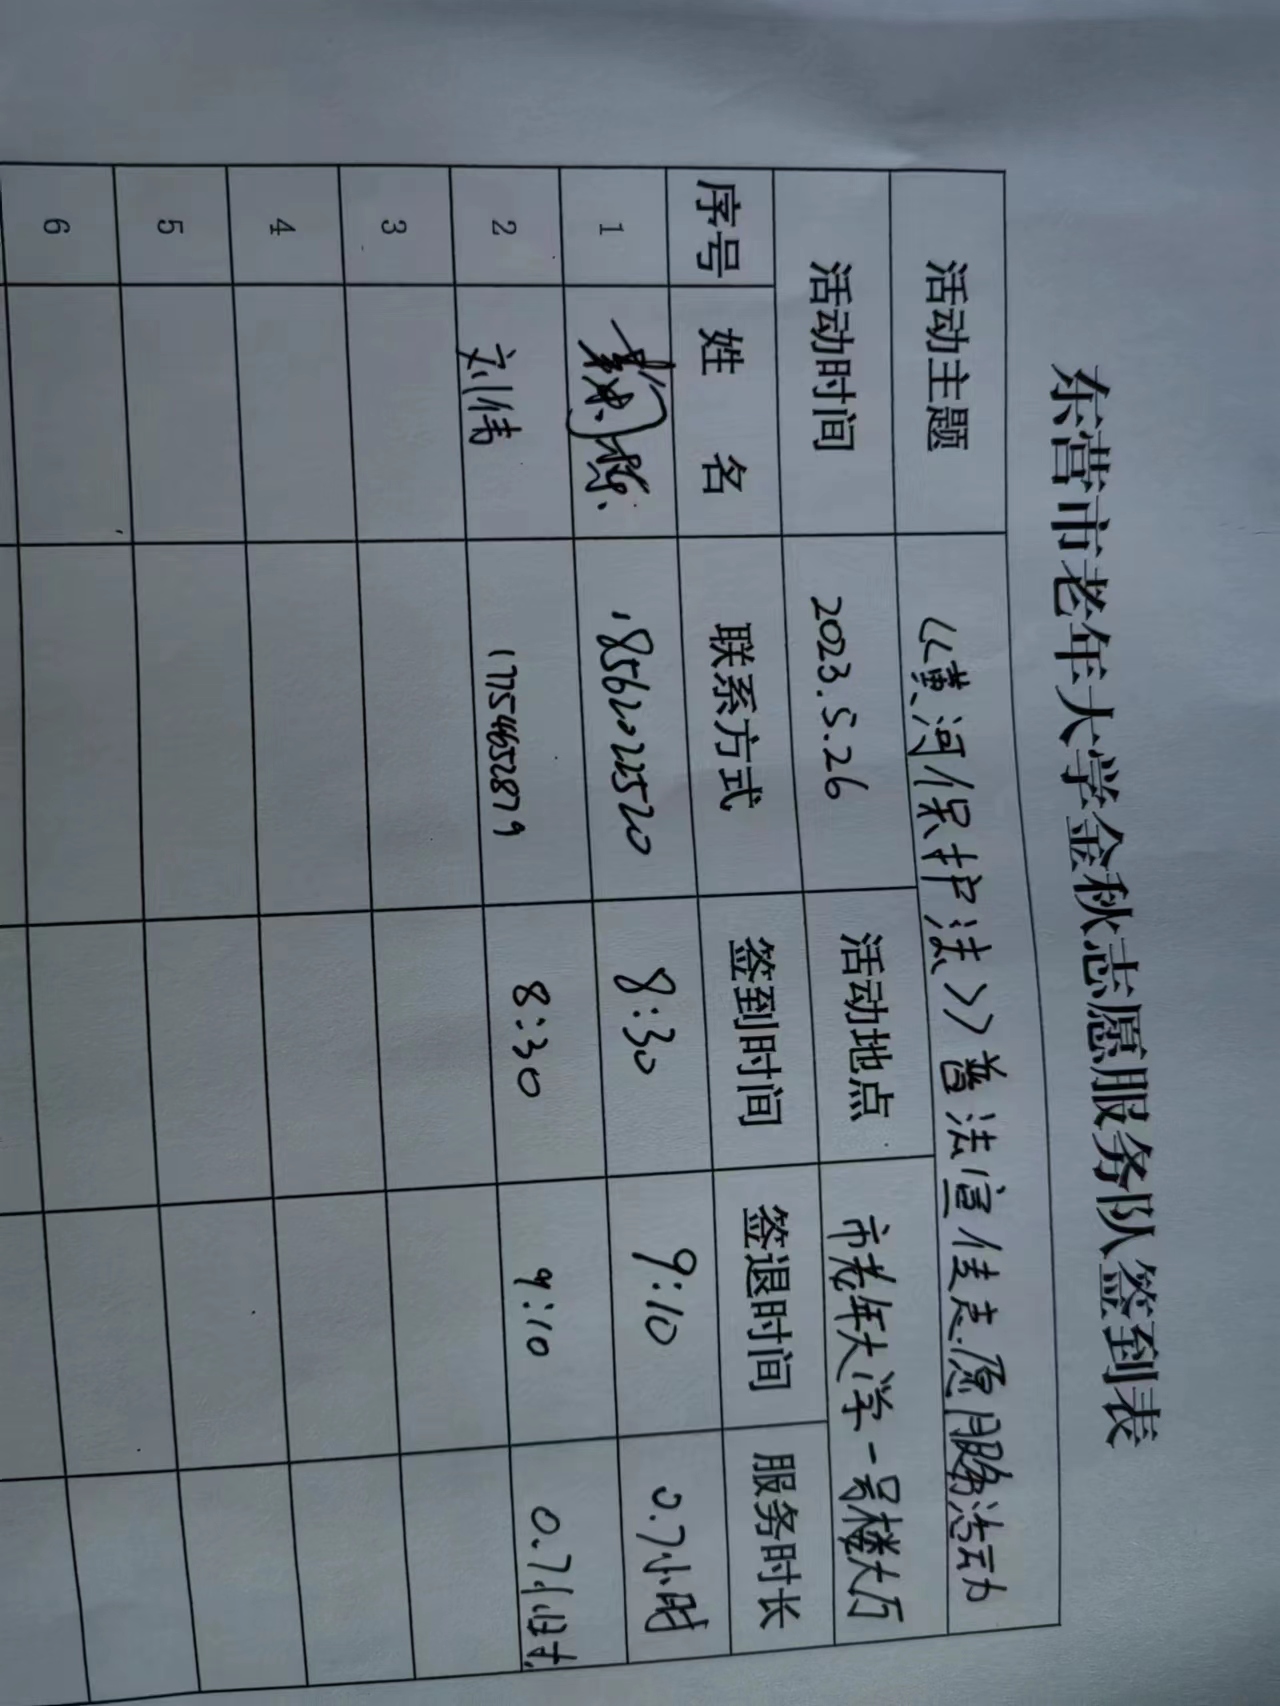 东营市老年大学金秋志愿服务队签到表
活动主题 《黄河保护法》普法宣传志愿服务活动
活动时间 2023.5.26 活动地点 市老年大学一号楼大厅
序号 姓 名 联系方式 签到时间 签退时间 服务时长
1 18562022520 8:30 9:10 0.7小时
2 刘伟 17754652879 8:30 9:10 0.7小时
3
4
5
6